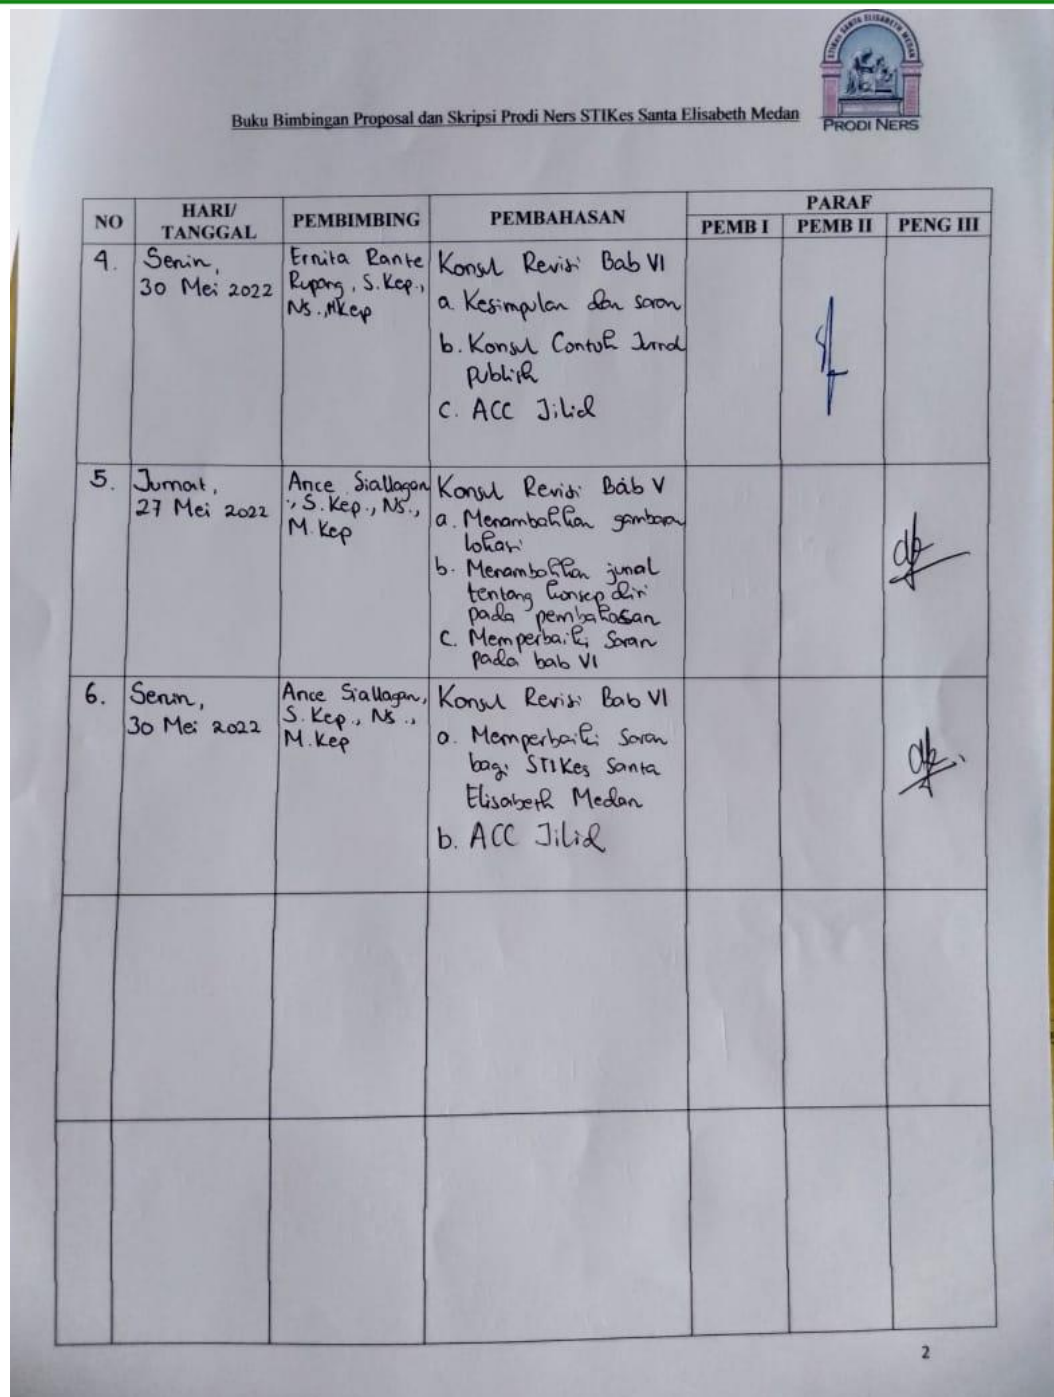 STIKes SANTA ELISABETH MEDAN
PRODI NERS
Buku Bimbingan Proposal dan Skripsi Prodi Ners STIKes Santa Elisabeth Medan
NO
HARI/
TANGGAL
PEMBIMBING
PEMBAHASAN
PARAF
PEMB I
PEMB II
PENG III
4.
Senin,
30 Mei 2022
Ernita Rante
Rupang, S.Kep.,
Ns.,MKep
Konsul Revisi Bab VI
a. Kesimpulan dan saran
b. Konsul Contoh Jurnal
publish
c. ACC Jilid
5.
Jumat,
27 Mei 2022
Ance Siallagan
., S.Kep., Ns.,
M.Kep
Konsul Revisi Bab V
a. Menambahkan gambaran
lokasi
b. Menambahkan junal
tentang konsep diri
pada pembahasan
c. Memperbaiki Saran
pada bab VI
6.
Senin,
30 Mei 2022
Ance Siallagan,
S.Kep., Ns.,
M.Kep
Konsul Revisi Bab VI
a. Memperbaiki Saran
bagi STIKes Santa
Elisabeth Medan
b. ACC Jilid
2